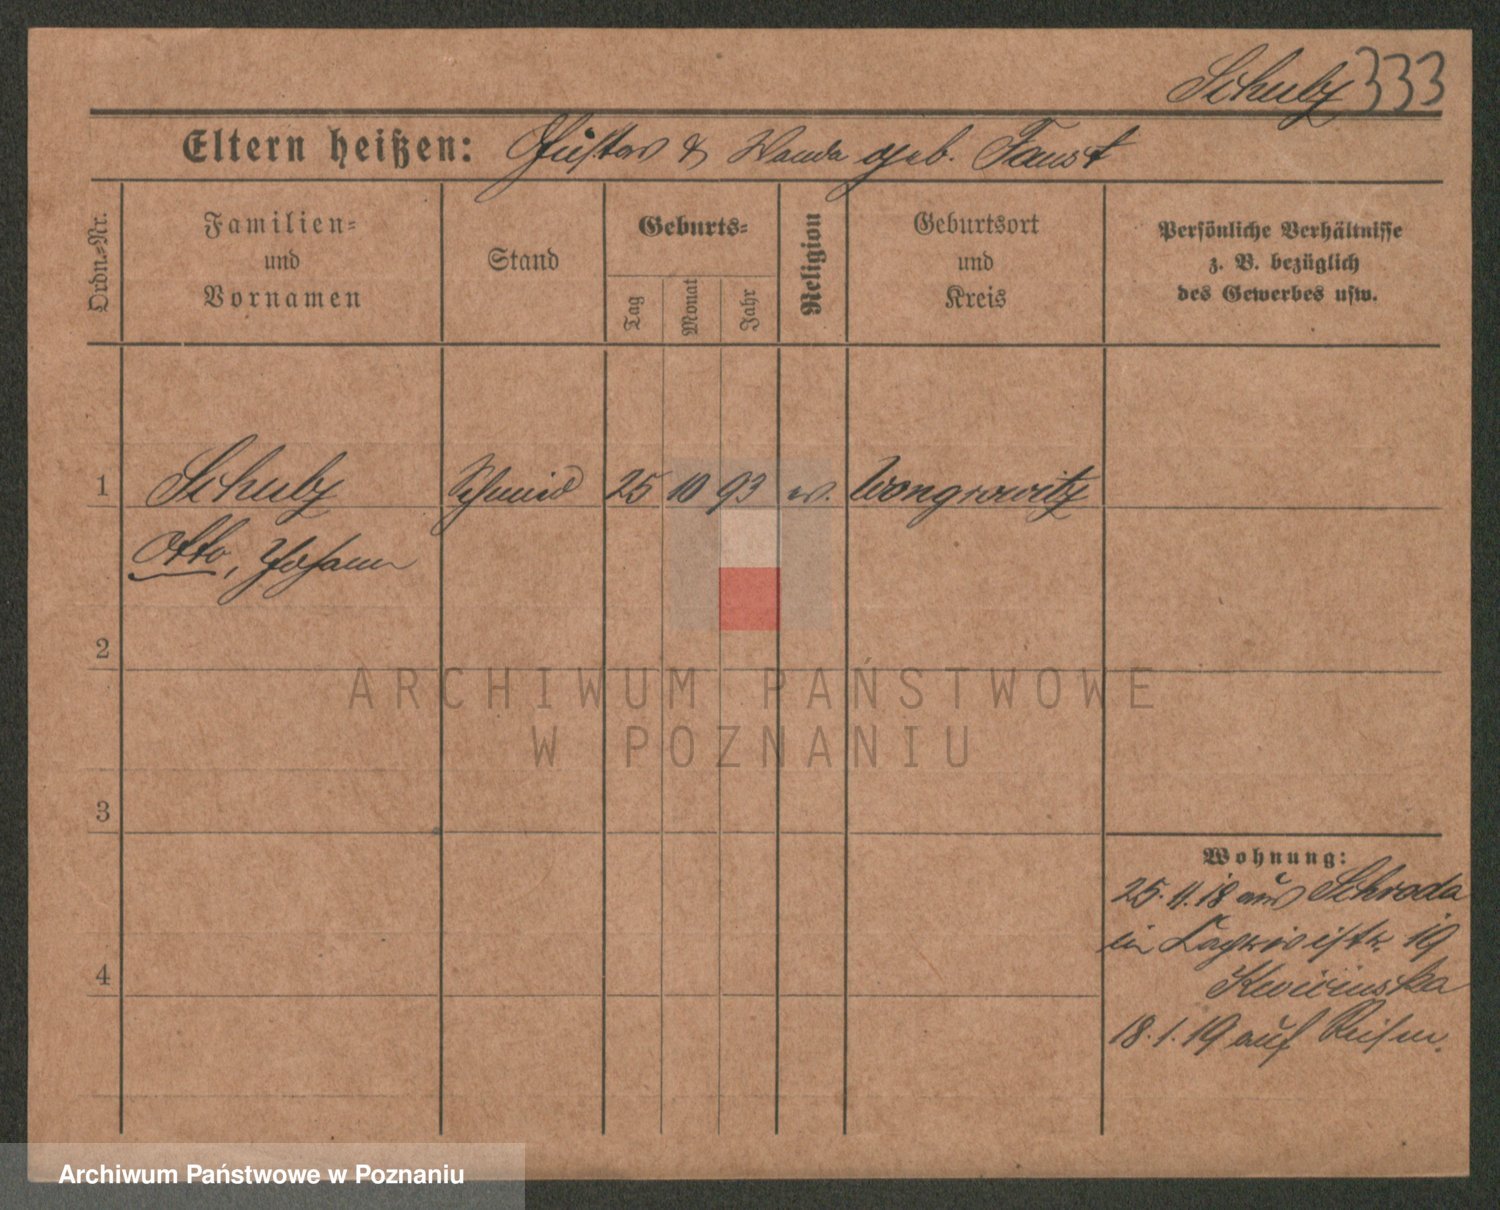 Schulz 333
Eltern heißen: Gustav & Wanda geb. Faust
Ordn.-Nr.
Familien-
und
Vornamen
Stand
Geburts-
Tag
Monat
Jahr
Religion
Geburtsort
und
Kreis
Persönliche Verhältnisse
z. B. bezüglich
des Gewerbes usw.
1 Schulz Schmied 25 10 93 ev. Wongrowitz
Otto, Johann
2
ARCHIWUM PAŃSTWOWE
W POZNANIU
3
Wohnung:
25. 11. 18 aus Schroda
in 19
4
18. 1. 19 auf Reisen.
Archiwum Państwowe w Poznaniu